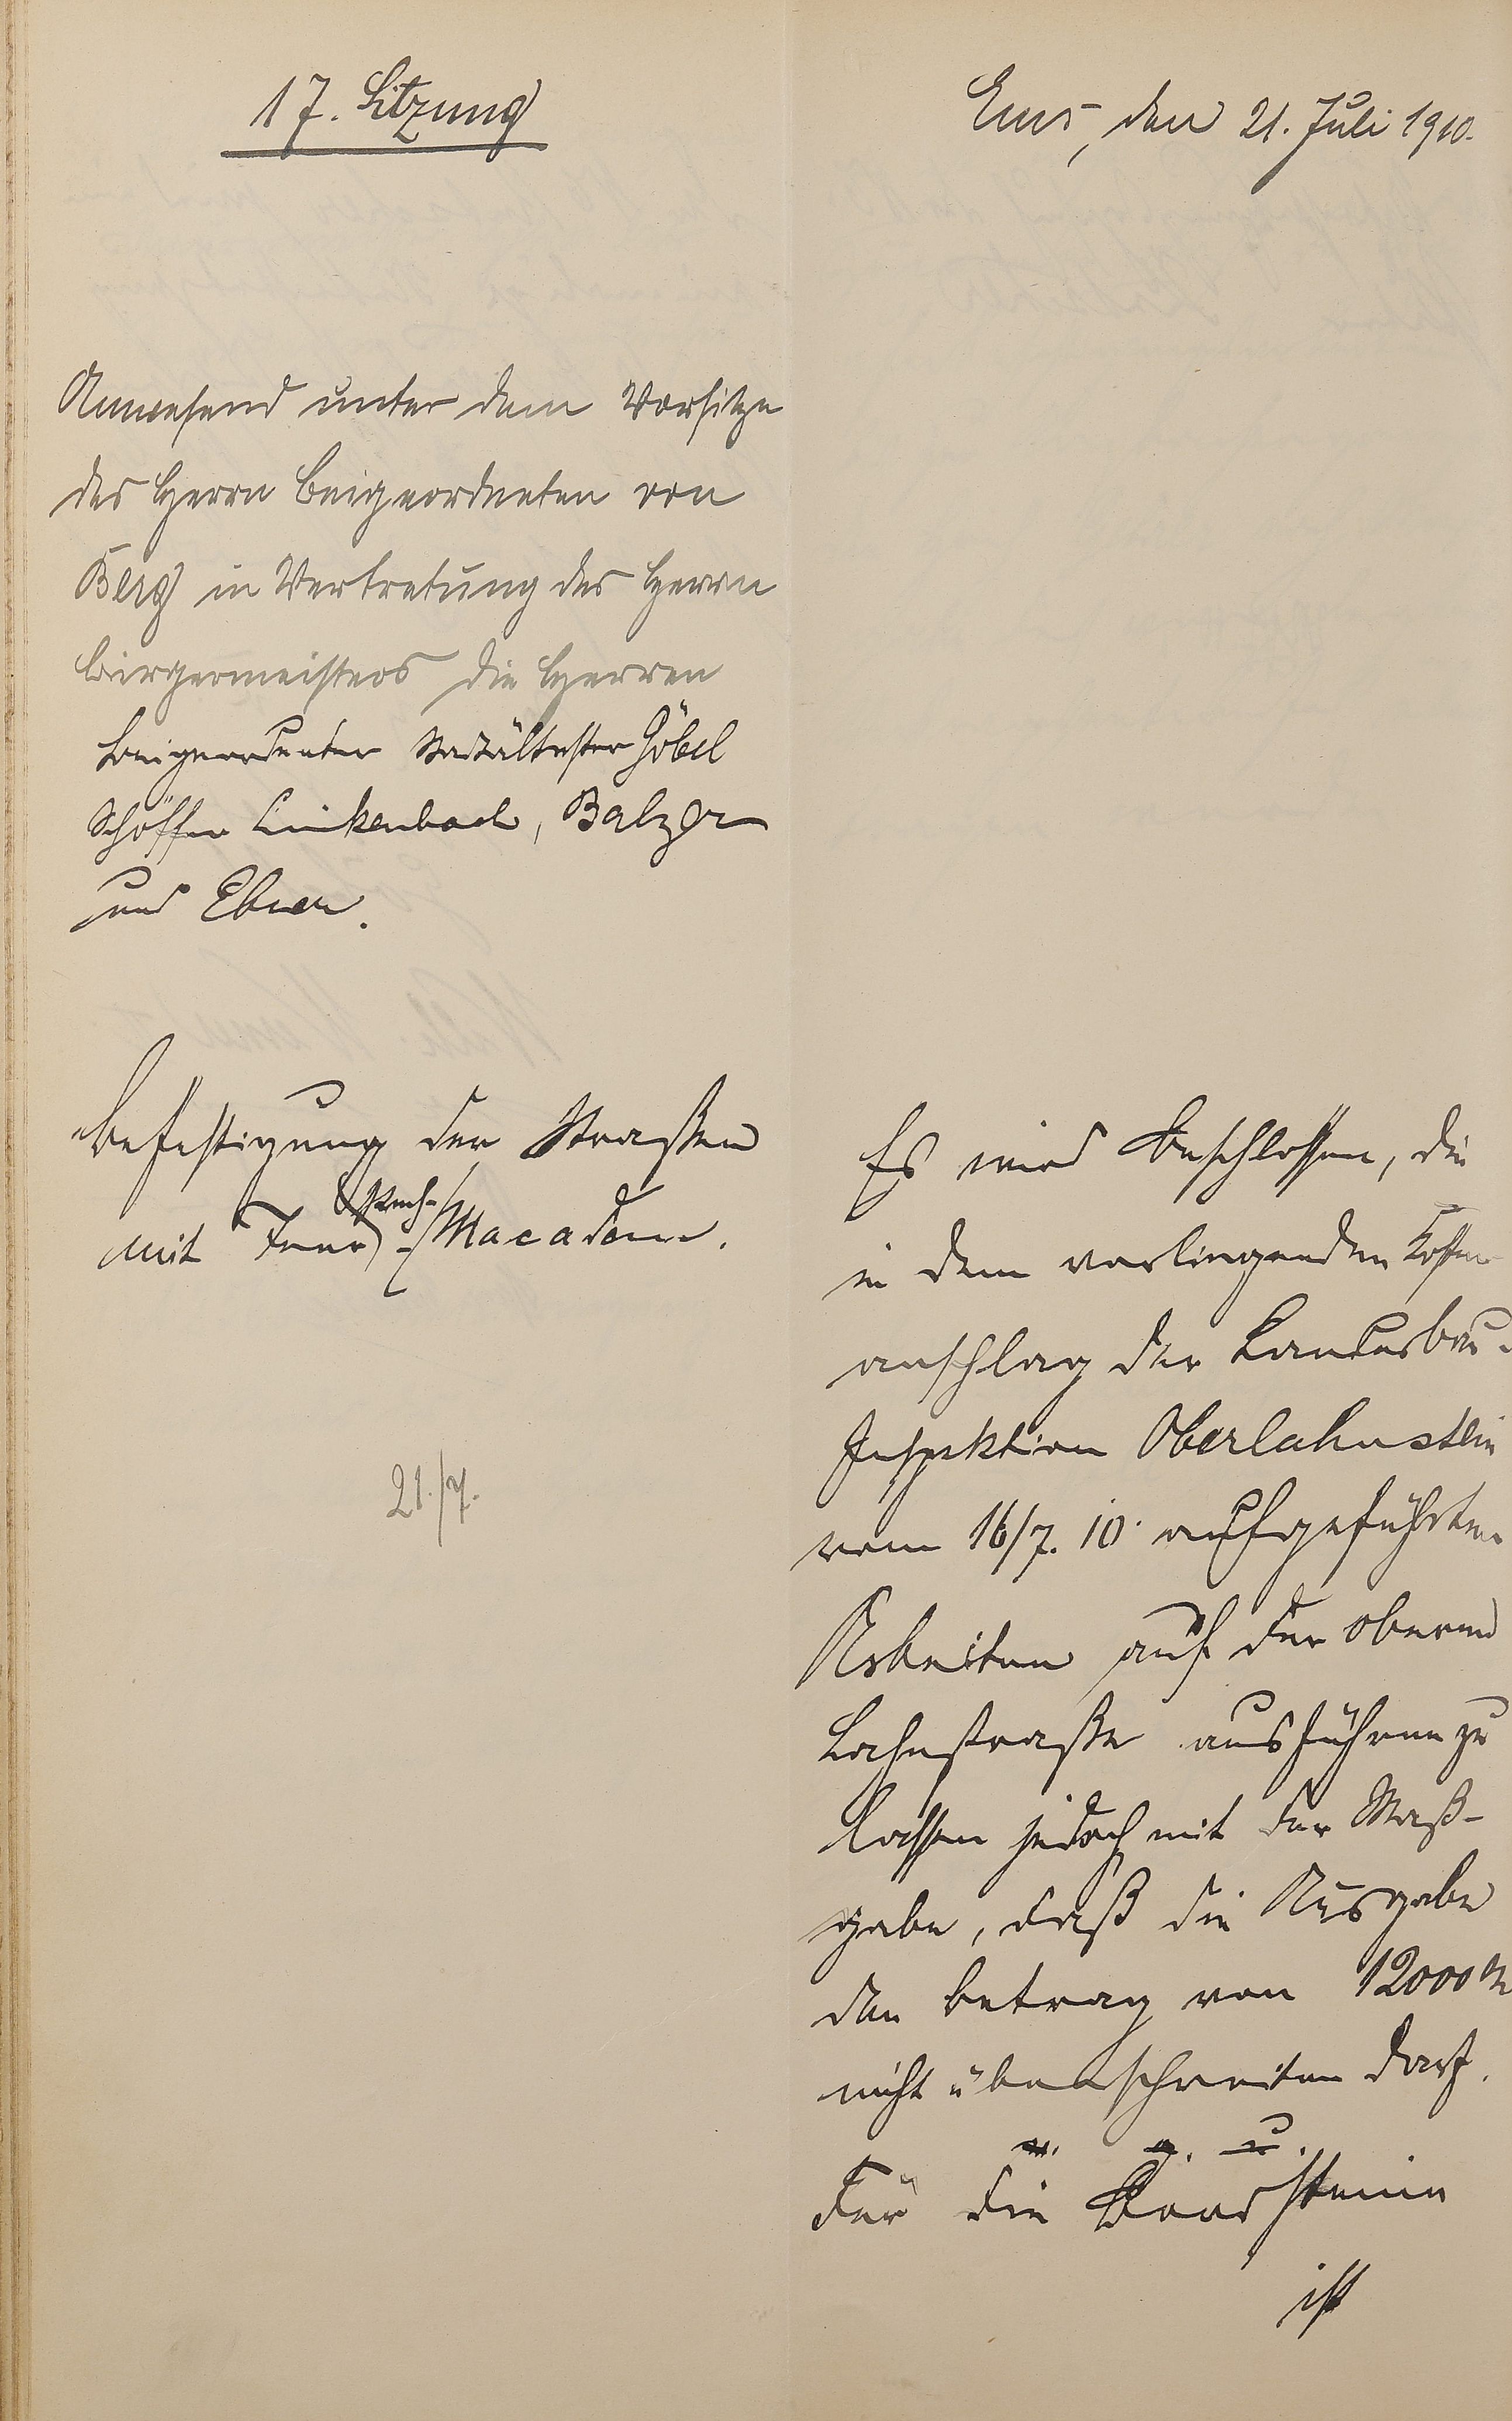 17. Sitzung
Ems, den 21. Juli 1910.
Anwesend unter dem Vorsitze
des Herrn Beigeordneten von
Berg in Vertretung des Herrn
Bürgermeisters die Herren
Beigeordneter Stadtältester Göbel
Schöffen Linkenbach, Balzer
und Ebner.
Befestigung der Straßen
mit Teer-Macadam.
21./7.
Es wird beschlossen, die
in dem vorliegenden Kosten-
anschlag der Landesbau-
Inspektion Oberlahnstein
vom 16/7. 10. aufgeführten
Arbeiten auf der oberen
Lahnstraße ausführen zu
lassen jedoch mit der Maß-
gabe, daß die Ausgabe
den Betrag von 12000 M
nicht überschreiten darf.
v. g. u.
Für die Bordsteine
ist